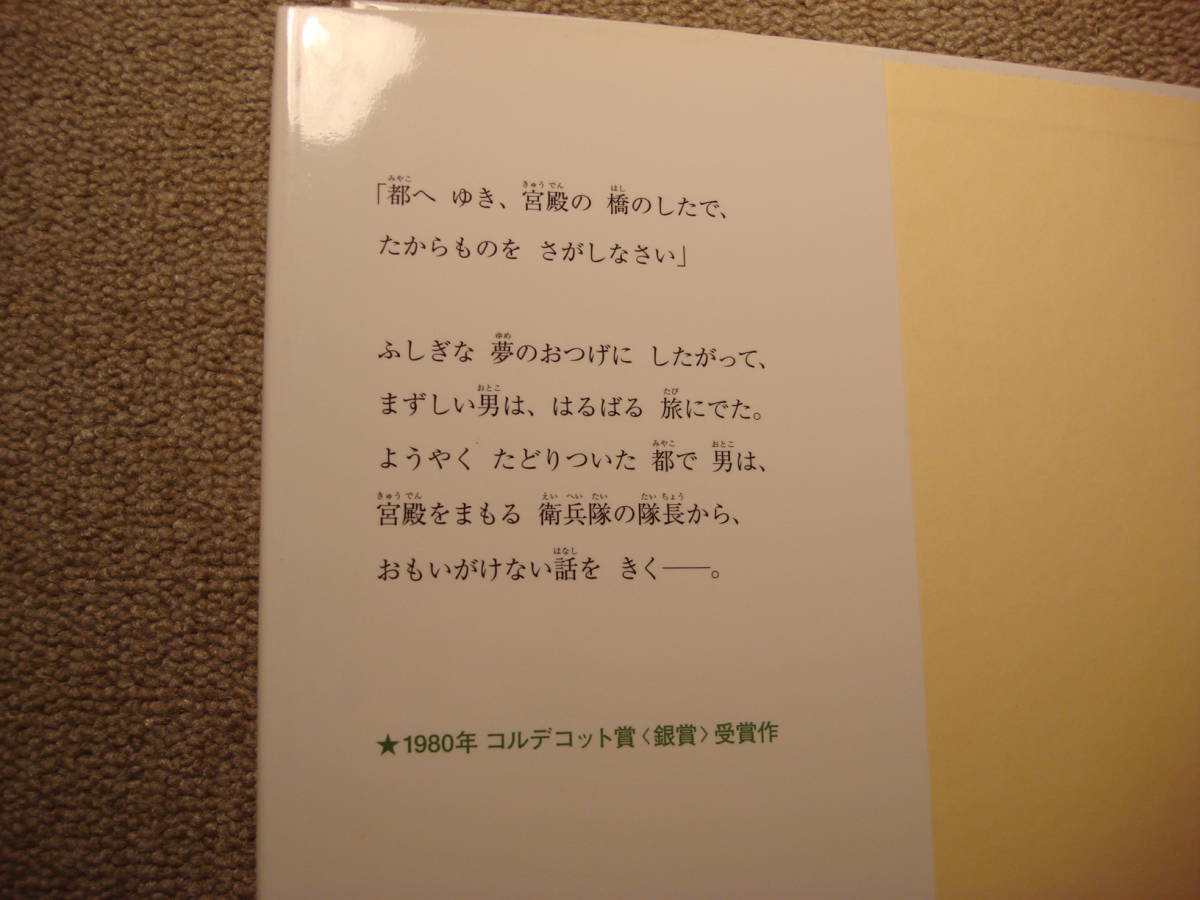 「都へ ゆき、宮殿の 橋のしたで、
たからものを さがしなさい」
ふしぎな 夢のおつげに したがって、
まずしい男は、はるばる 旅にでた。
ようやく たどりついた 都で 男は、
宮殿をまもる 衛兵隊の隊長から、
おもいがけない話を きく――。
★1980年 コルデコット賞〈銀賞〉受賞作